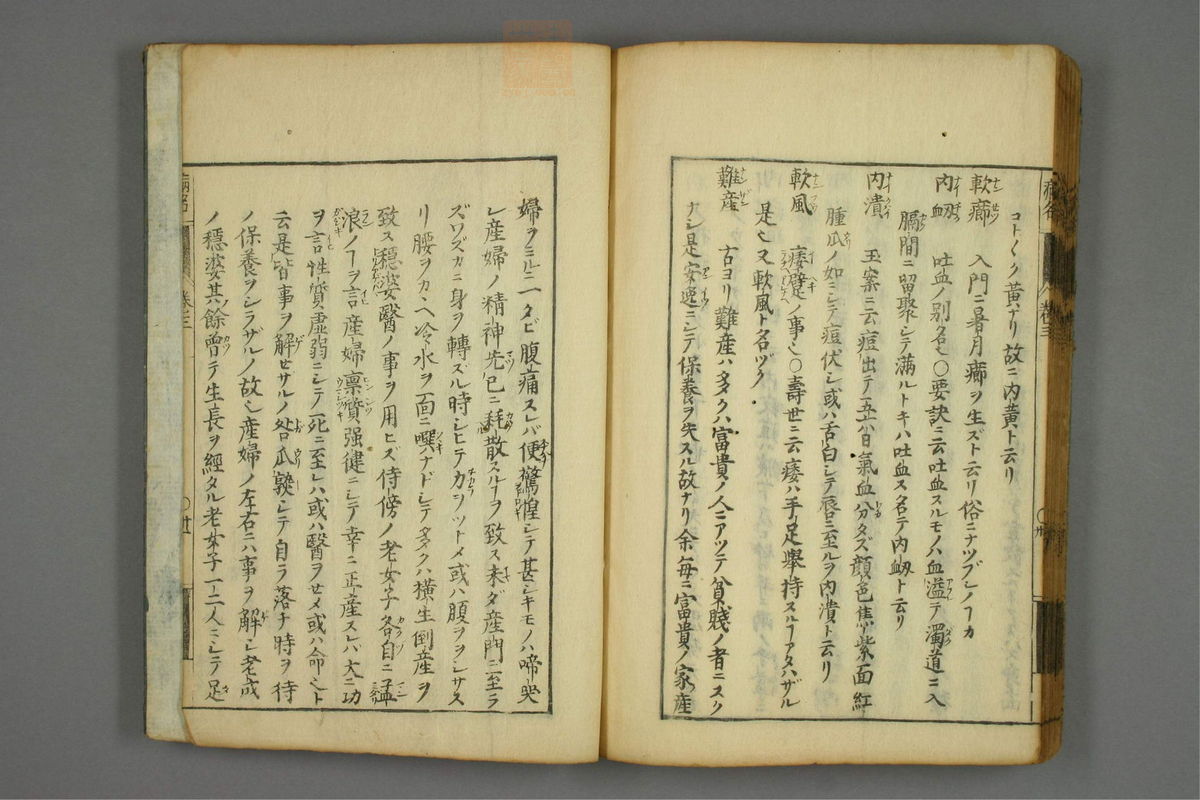 コト〱ク黄ナリ故ニ内黄ト云リ
軟癤 入門ニ暑月癤ヲ生ズト云リ俗ニナツブシノヿカ
内衂 吐血ノ別名也○要訣ニ云吐血スルモノハ血溢テ濁道ニ入
膈間ニ留聚シテ満ルトキハ吐血ス名テ内衂ト云リ
内潰 玉案ニ云痘出テ五六日氣血分タズ顔色焦紫面紅
腫瓜ノ如ニシテ痘伏シ或ハ舌白シテ唇ニ至ルヲ内潰ト云リ
軟風 痿躄ノ事也○壽世ニ云痿ハ手足舉持スルヿアタハザル
是也又軟風ト名ヅク
難産 古ヨリ難産ハ多クハ富貴ノ人ニアツテ貧賤ノ者ニスク
ナシ是安逸ニシテ保養ヲ失スル故ナリ余毎ニ富貴ノ家産
婦ヲミルニ一タビ腹痛スレバ便驚惶シテ甚シキモノハ啼哭
シ産婦ノ精神先已ニ耗散スルヿヲ致ス未ダ産門ニ至ラ
ズワズカニ身ヲ轉ズル時シヒテ力ヲツトメ或ハ腹ヲヲシサス
リ腰ヲカヽヘ冷水ヲ面ニ噀ハナドシテ多クハ横生倒産ヲ
致ス穏婆醫ノ事ヲ用ヒズ侍傍ノ老女子各自ニ孟
浪ノヿヲ言産婦稟質强健ニシテ幸ニ正産スレバ大ニ功
ヲ言性質虚弱ニシテ死ニ至レハ或ハ醫ヲセメ或ハ命也ト
云是皆事ヲ解セザルノ咎瓜熟シテ自ラ落ナ時ヲ待
ノ保養ヲシラザルノ故也産婦ノ左右ニハ事ヲ解シ老成
ノ穏婆其餘曽テ生長ヲ經タル老女子一二人ニシテ足